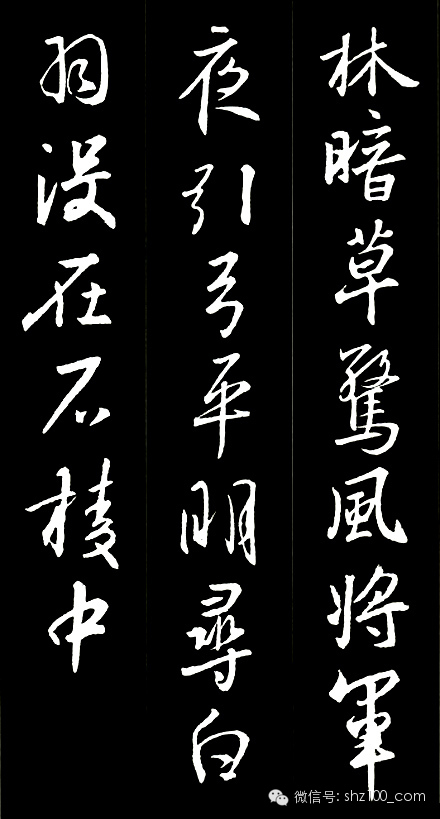 林暗草驚風將軍
夜引弓平明尋白
羽没在石棱中
微信号: shz100_com